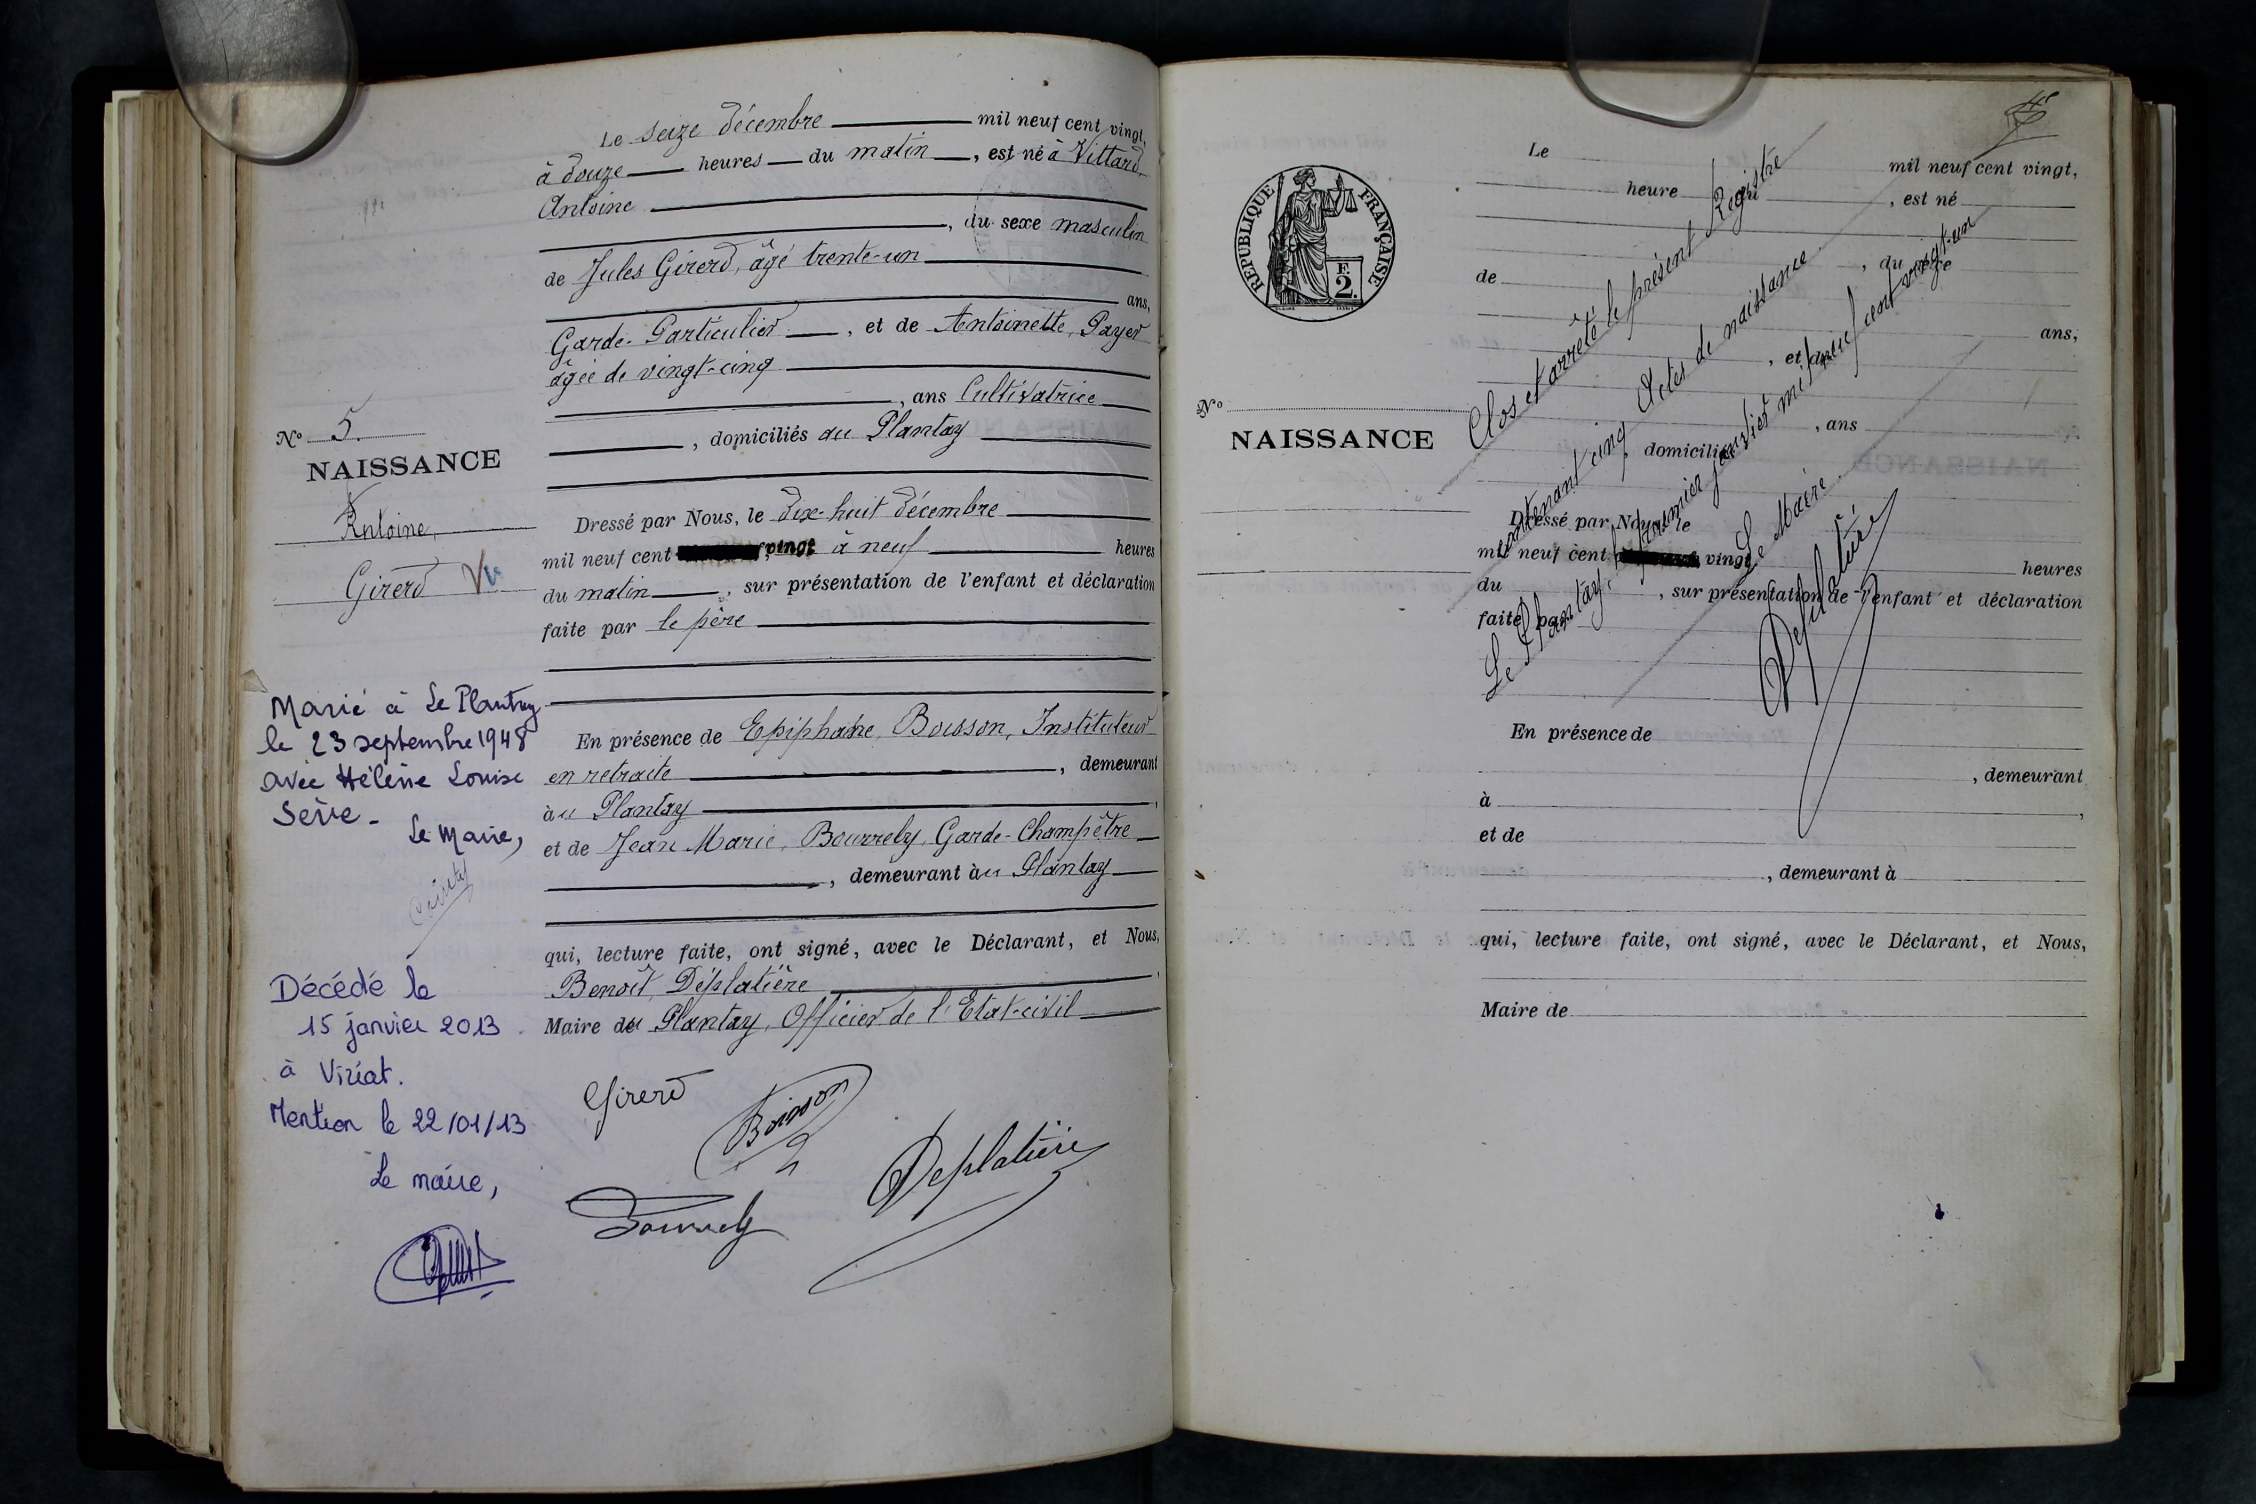 Le seize décembre mil neuf cent vingt,
à douze heures du matin, est né à Villard
Antoine
, du sexe masculin
de Jules Girerd, âgé trente-un
ans,
Garde-Particulier, et de Antoinette, Payer
âgée de vingt-cinq
, ans Cultivatrice
, domiciliés au Plantay
Dressé par Nous, le dix-huit décembre
mil neuf cent vingt à neuf heures
du matin, sur présentation de l'enfant et déclaration
faite par le père
En présence de Epiphane, Boisson, Instituteur
en retraite, demeurant
au Plantay,
et de Jean Marie, Bourrely, Garde-Champêtre
, demeurant àu Plantay
qui, lecture faite, ont signé, avec le Déclarant, et Nous,
Benoît, Déplatière,
Maire du Plantay, Officier de l'Etat-civil
Girerd
Boisson
Bourrely
Deplatière
No 5.
NAISSANCE
Antoine,
Girerd Vu
Marié à Le Plantay
le 23 septembre 1948
avec Hélène Louise
Sève -
Le Maire,
Décédé le
15 janvier 2013
à Viriat.
Mention le 22/01/13
Le maire,
REPUBLIQUE FRANÇAISE
F.
2.
No
NAISSANCE
Le mil neuf cent vingt,
heure du, est né
de, du sexe
ans,
, et de
, ans
domiciliés
Dressé par Nous, le
mil neuf cent vingt heures
du, sur présentation de l'enfant et déclaration
faite par
En présence de
, demeurant
à,
et de
, demeurant à
qui, lecture faite, ont signé, avec le Déclarant, et Nous,
Maire de
Clos et arrêté le présent Registre
contenant cinq Actes de naissance
Le Plantay, le premier janvier mil neuf cent vingt-un
Le Maire
Deplatière